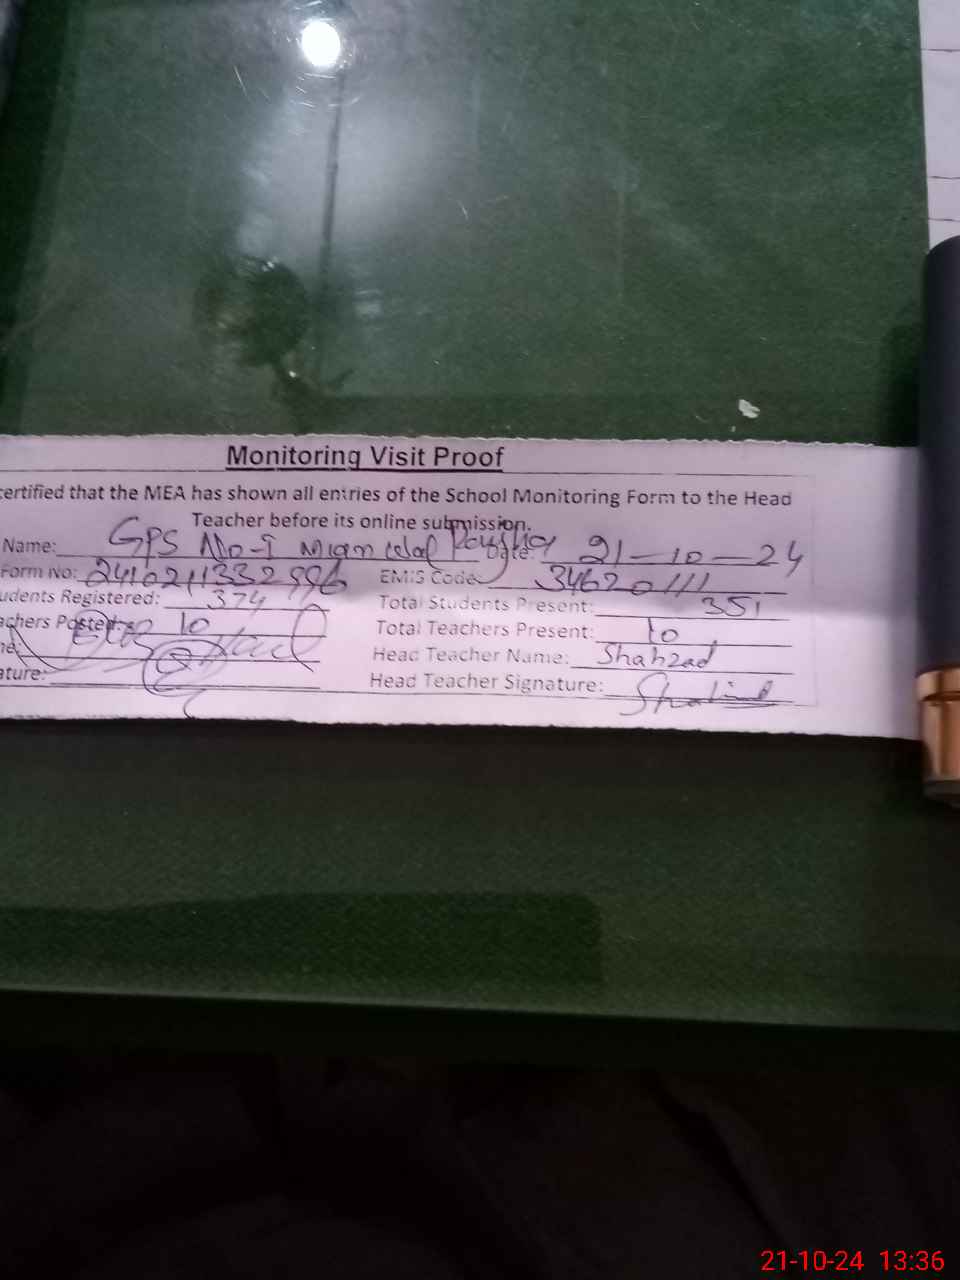 Monitoring Visit Proof
certified that the MEA has shown all entries of the School Monitoring Form to the Head
Teacher before its online submission.
Name: GPS No-I Date: 21-10-24
Form No: EMIS Code: 34620111
udents Registered: 374 Total Students Present: 351
achers Posted: 10 Total Teachers Present: 10
me: Head Teacher Name: Shahzad
ature: Head Teacher Signature:
21-10-24 13:36